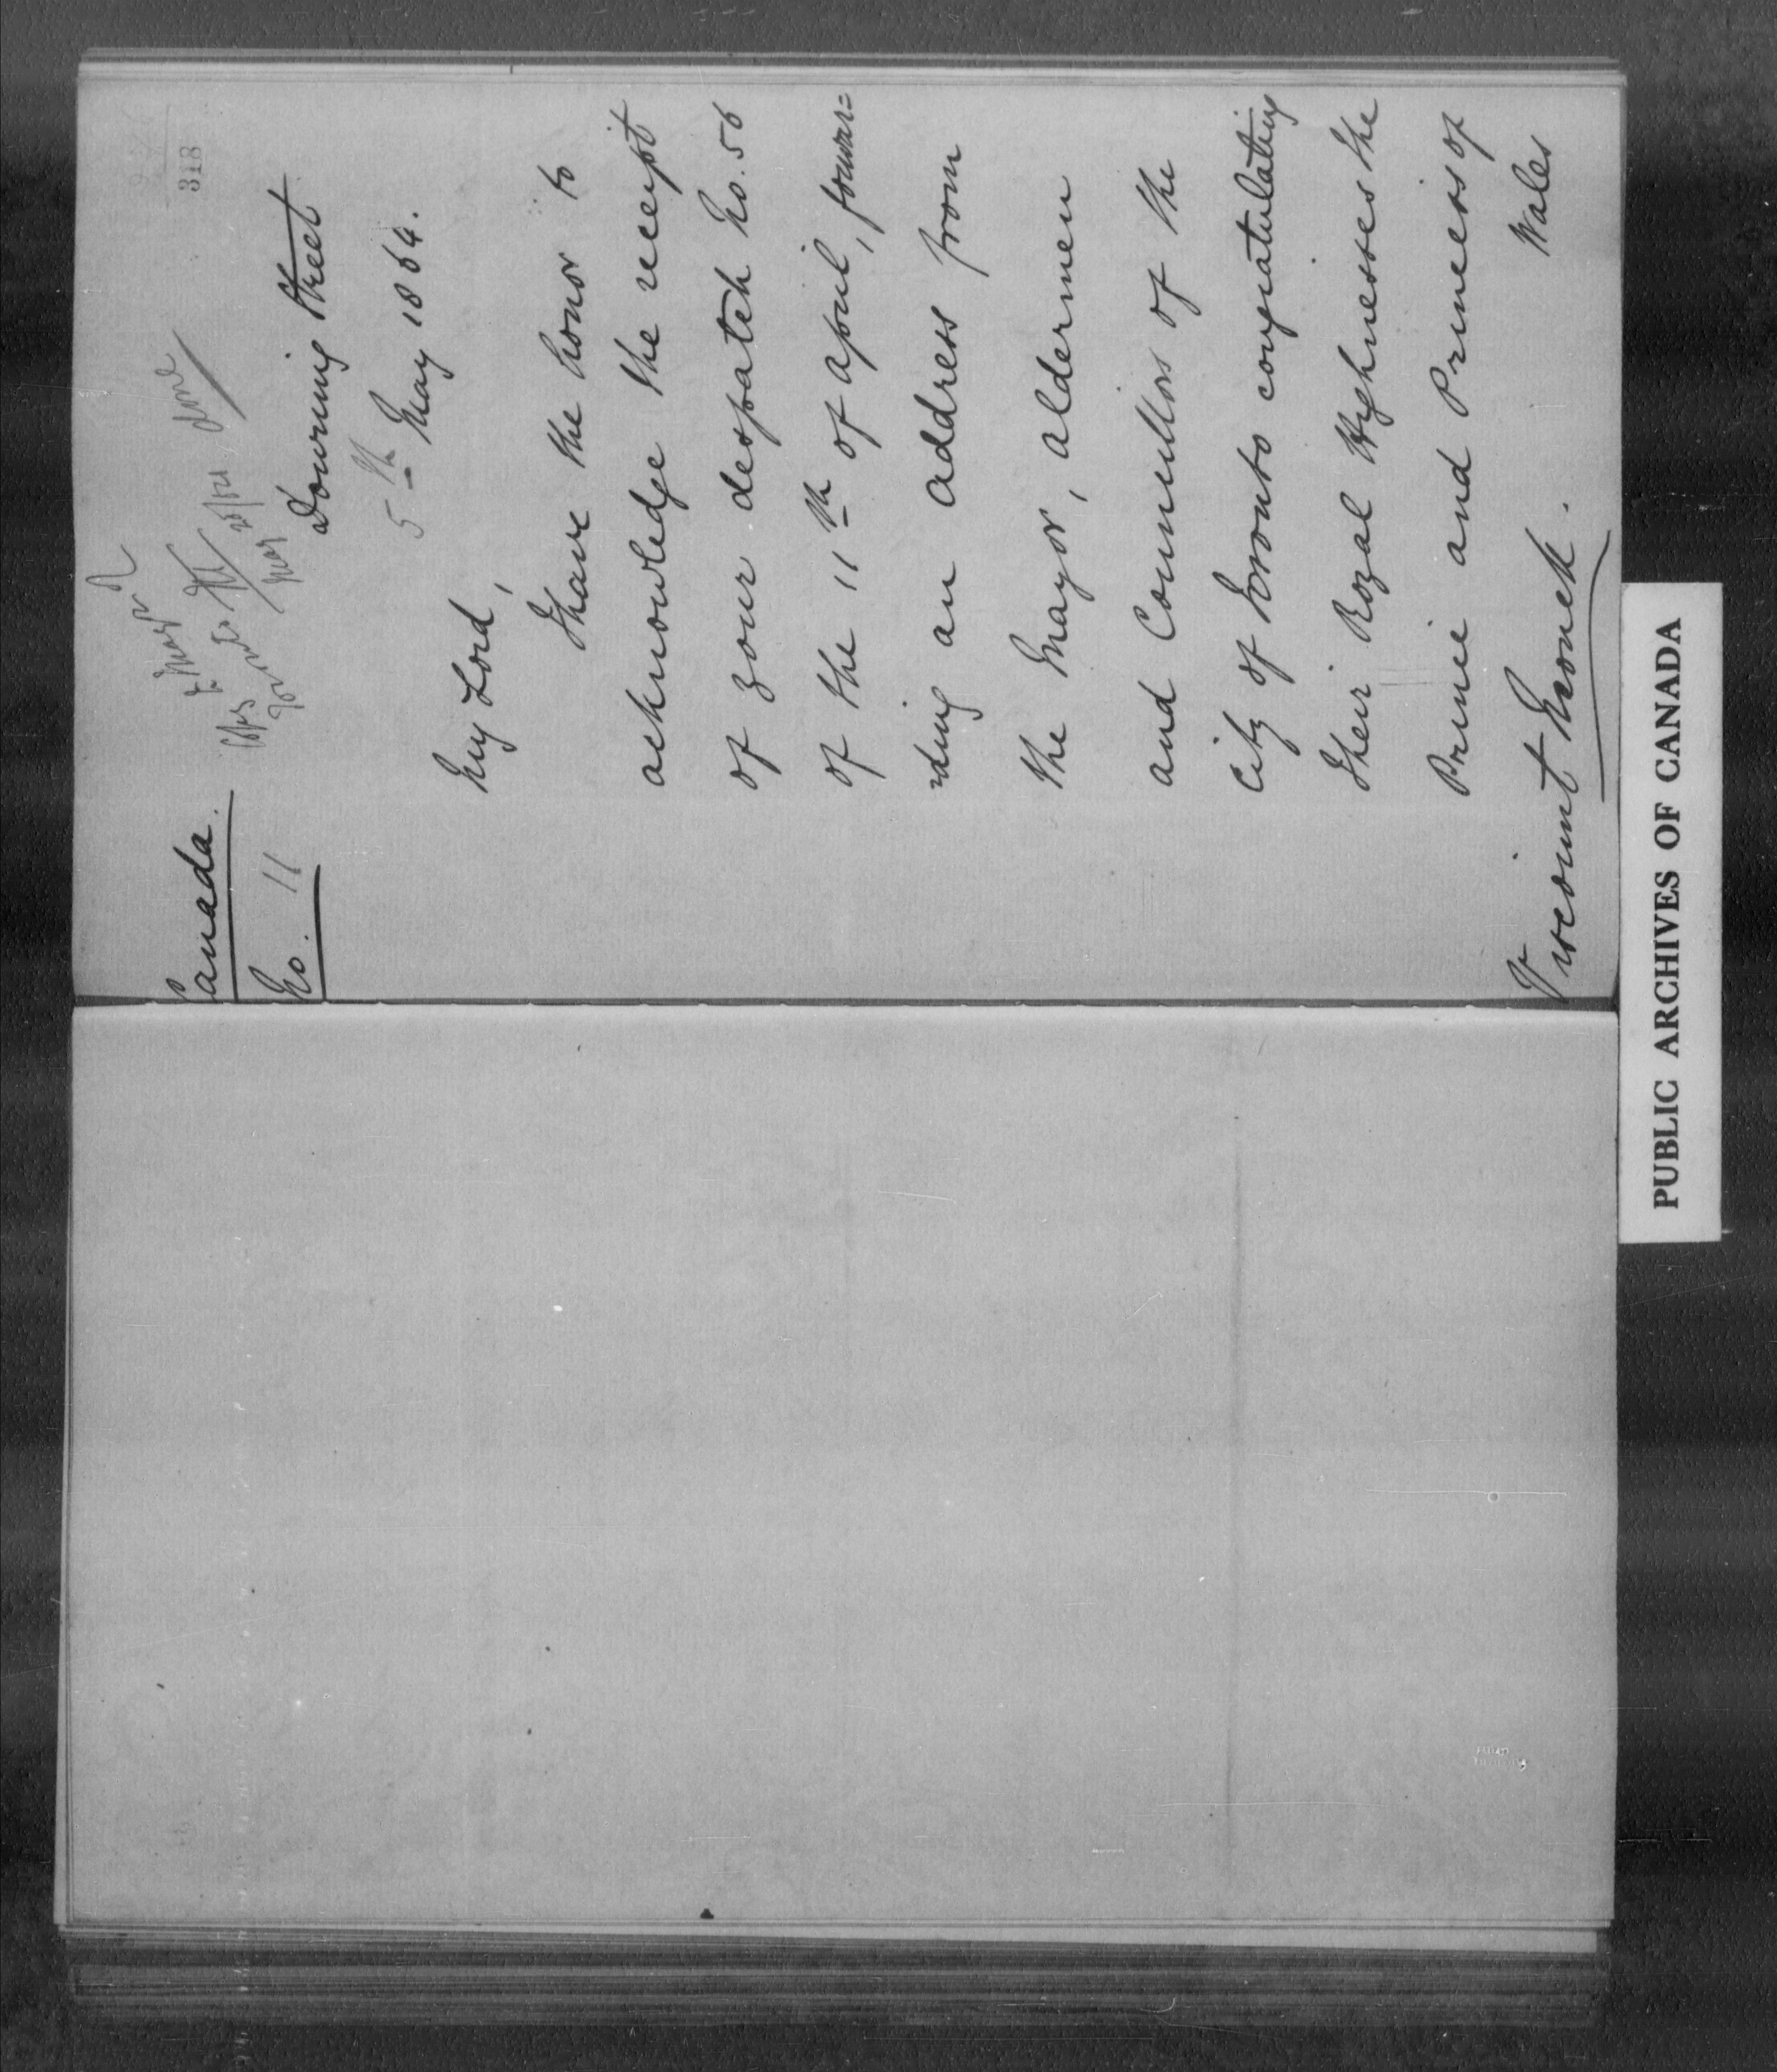 318
Canada.
No. 11
done
Downing Street
5th May 1864.
My Lord,
I have the honor to
acknowledge the receipt
of your despatch No. 56
of the 11th of April, forwar=
=ding an address from
the Mayor, Aldermen
and Councillors of the
City of Toronto congratulating
Their Royal Highnesses the
Prince and Princess of
Wales
Viscount Monck.
PUBLIC ARCHIVES OF CANADA